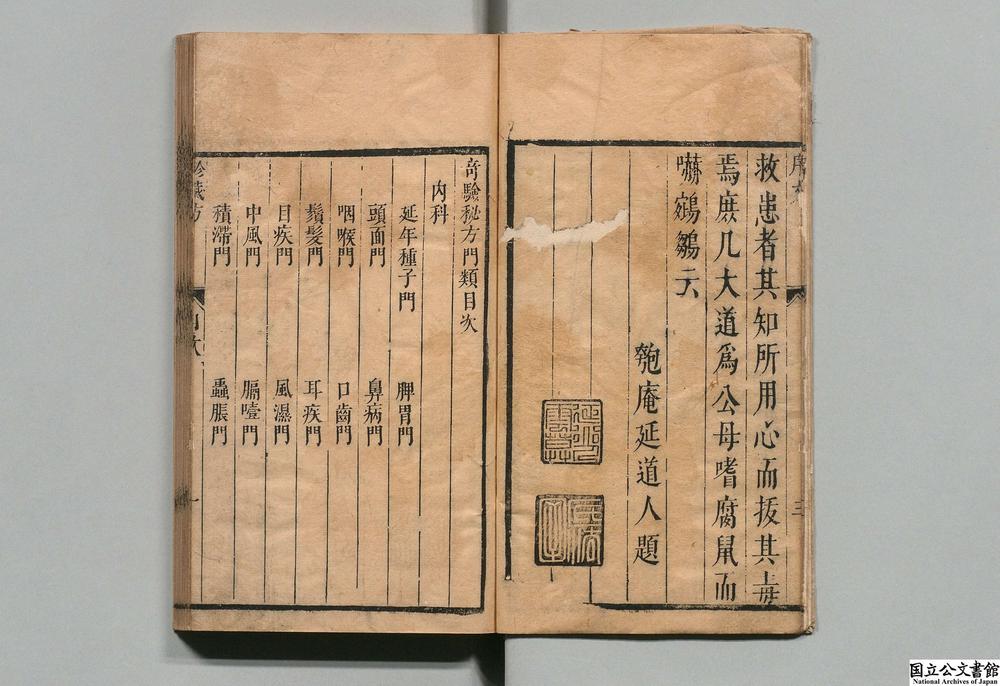 救患者其知所用心而拔其毒
焉庶几大道爲公母嗜腐鼠而
嚇鵷鶵云
匏庵延道人題
三
奇驗秘方門類目次
內科
延年種子門 脾胃門
頭面門 鼻病門
咽喉門 口齒門
鬚髮門 耳疾門
目疾門 風濕門
中風門 膈噎門
積滯門 蟲脹門
珍藏方 目次 一
国立公文書館
National Archives of Japan